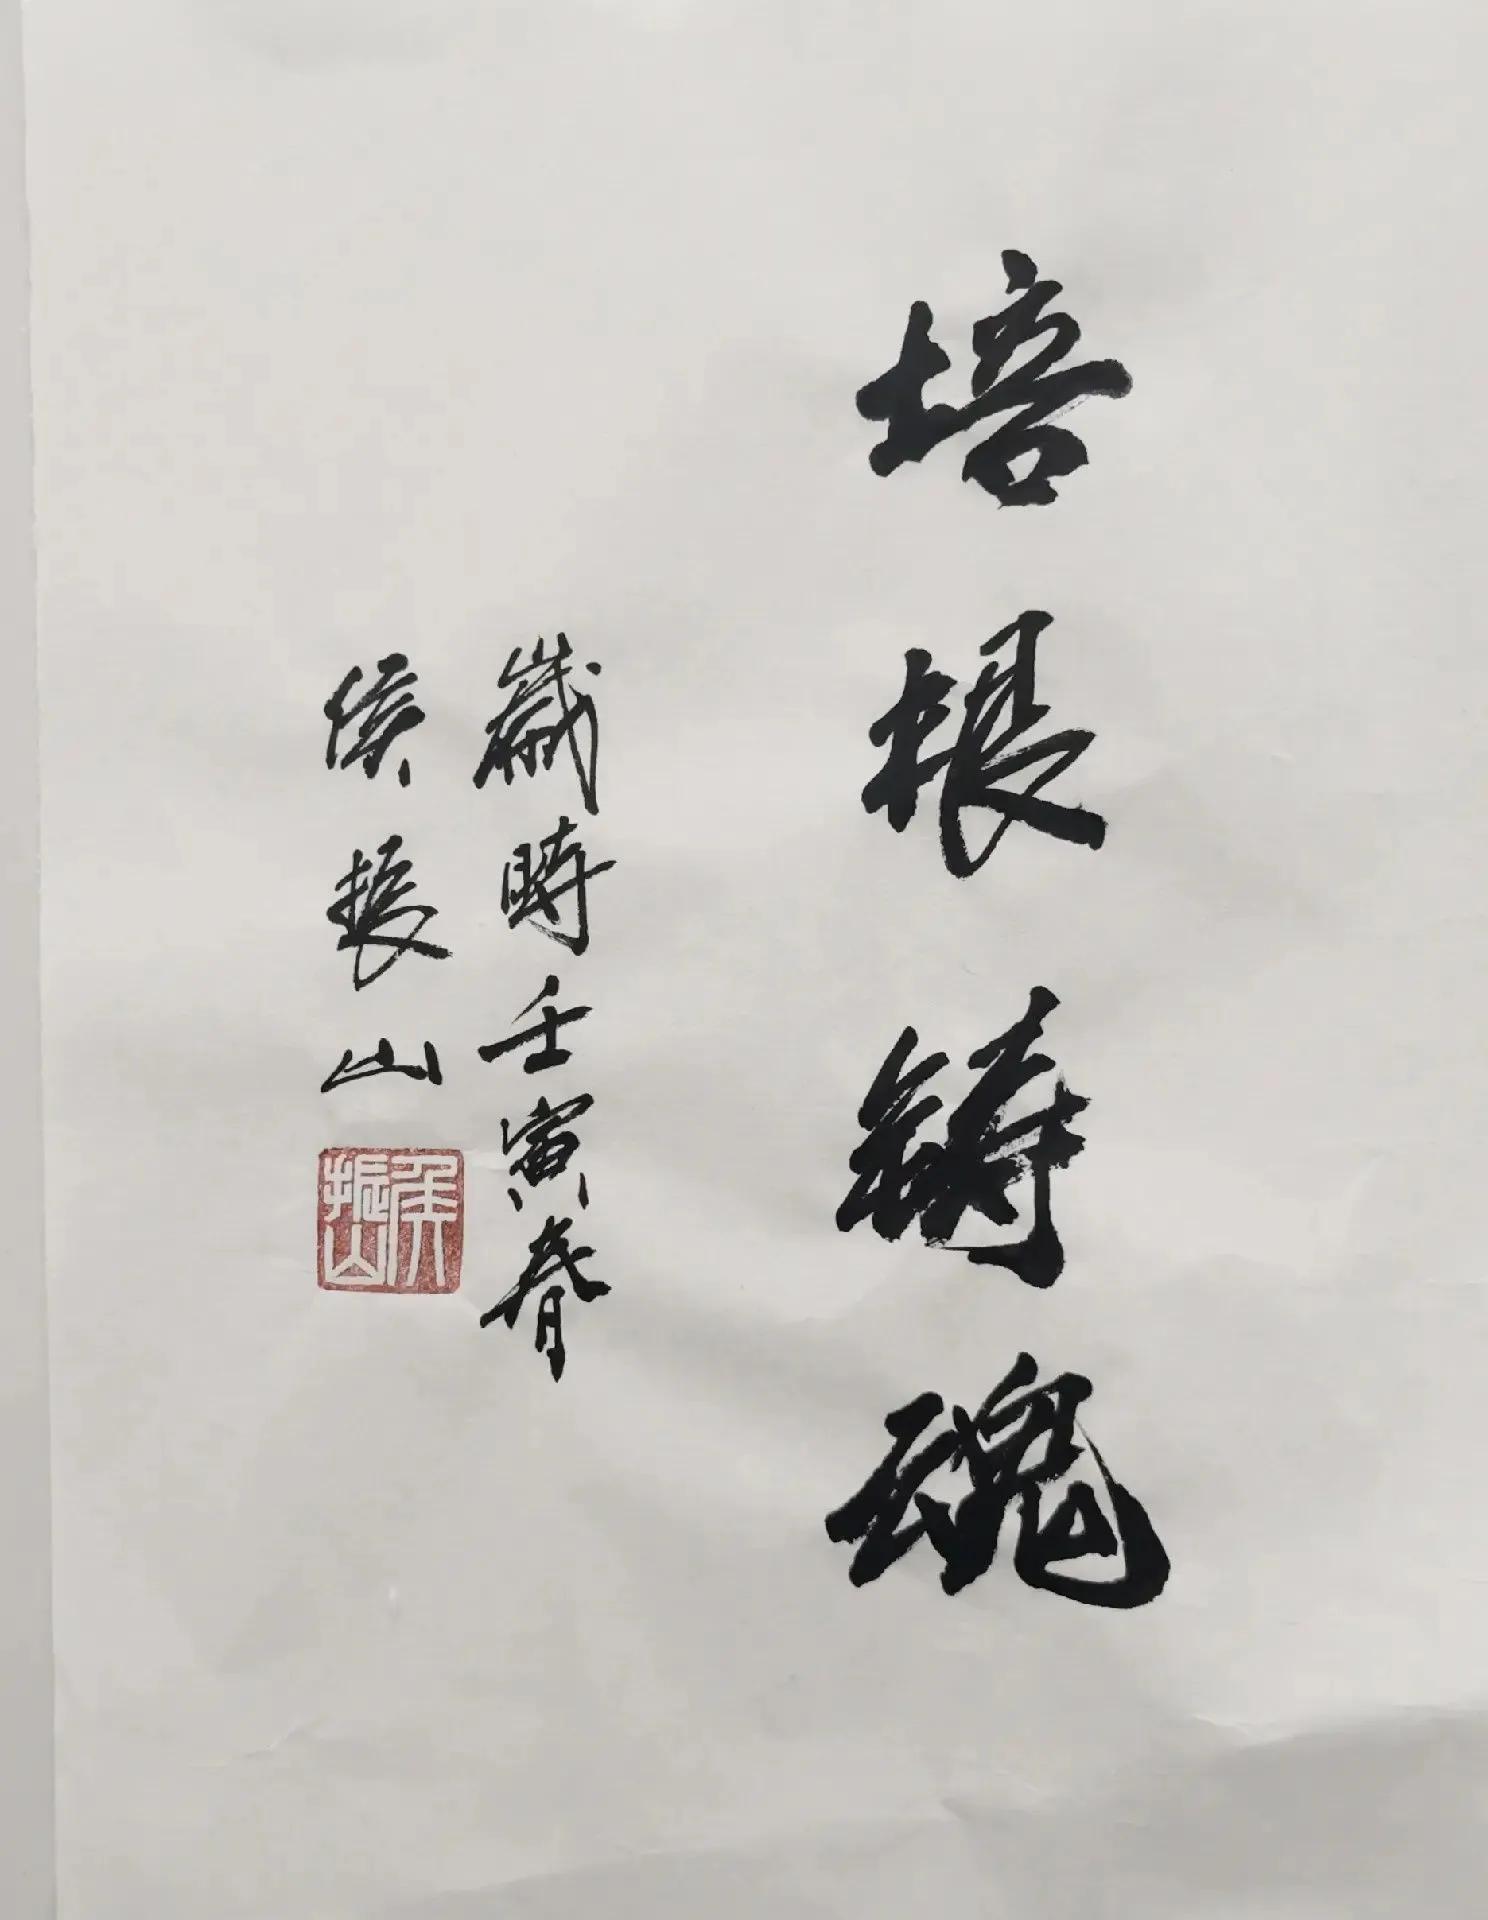 培根铸魂
歲時壬寅春
侯振山
侯振山